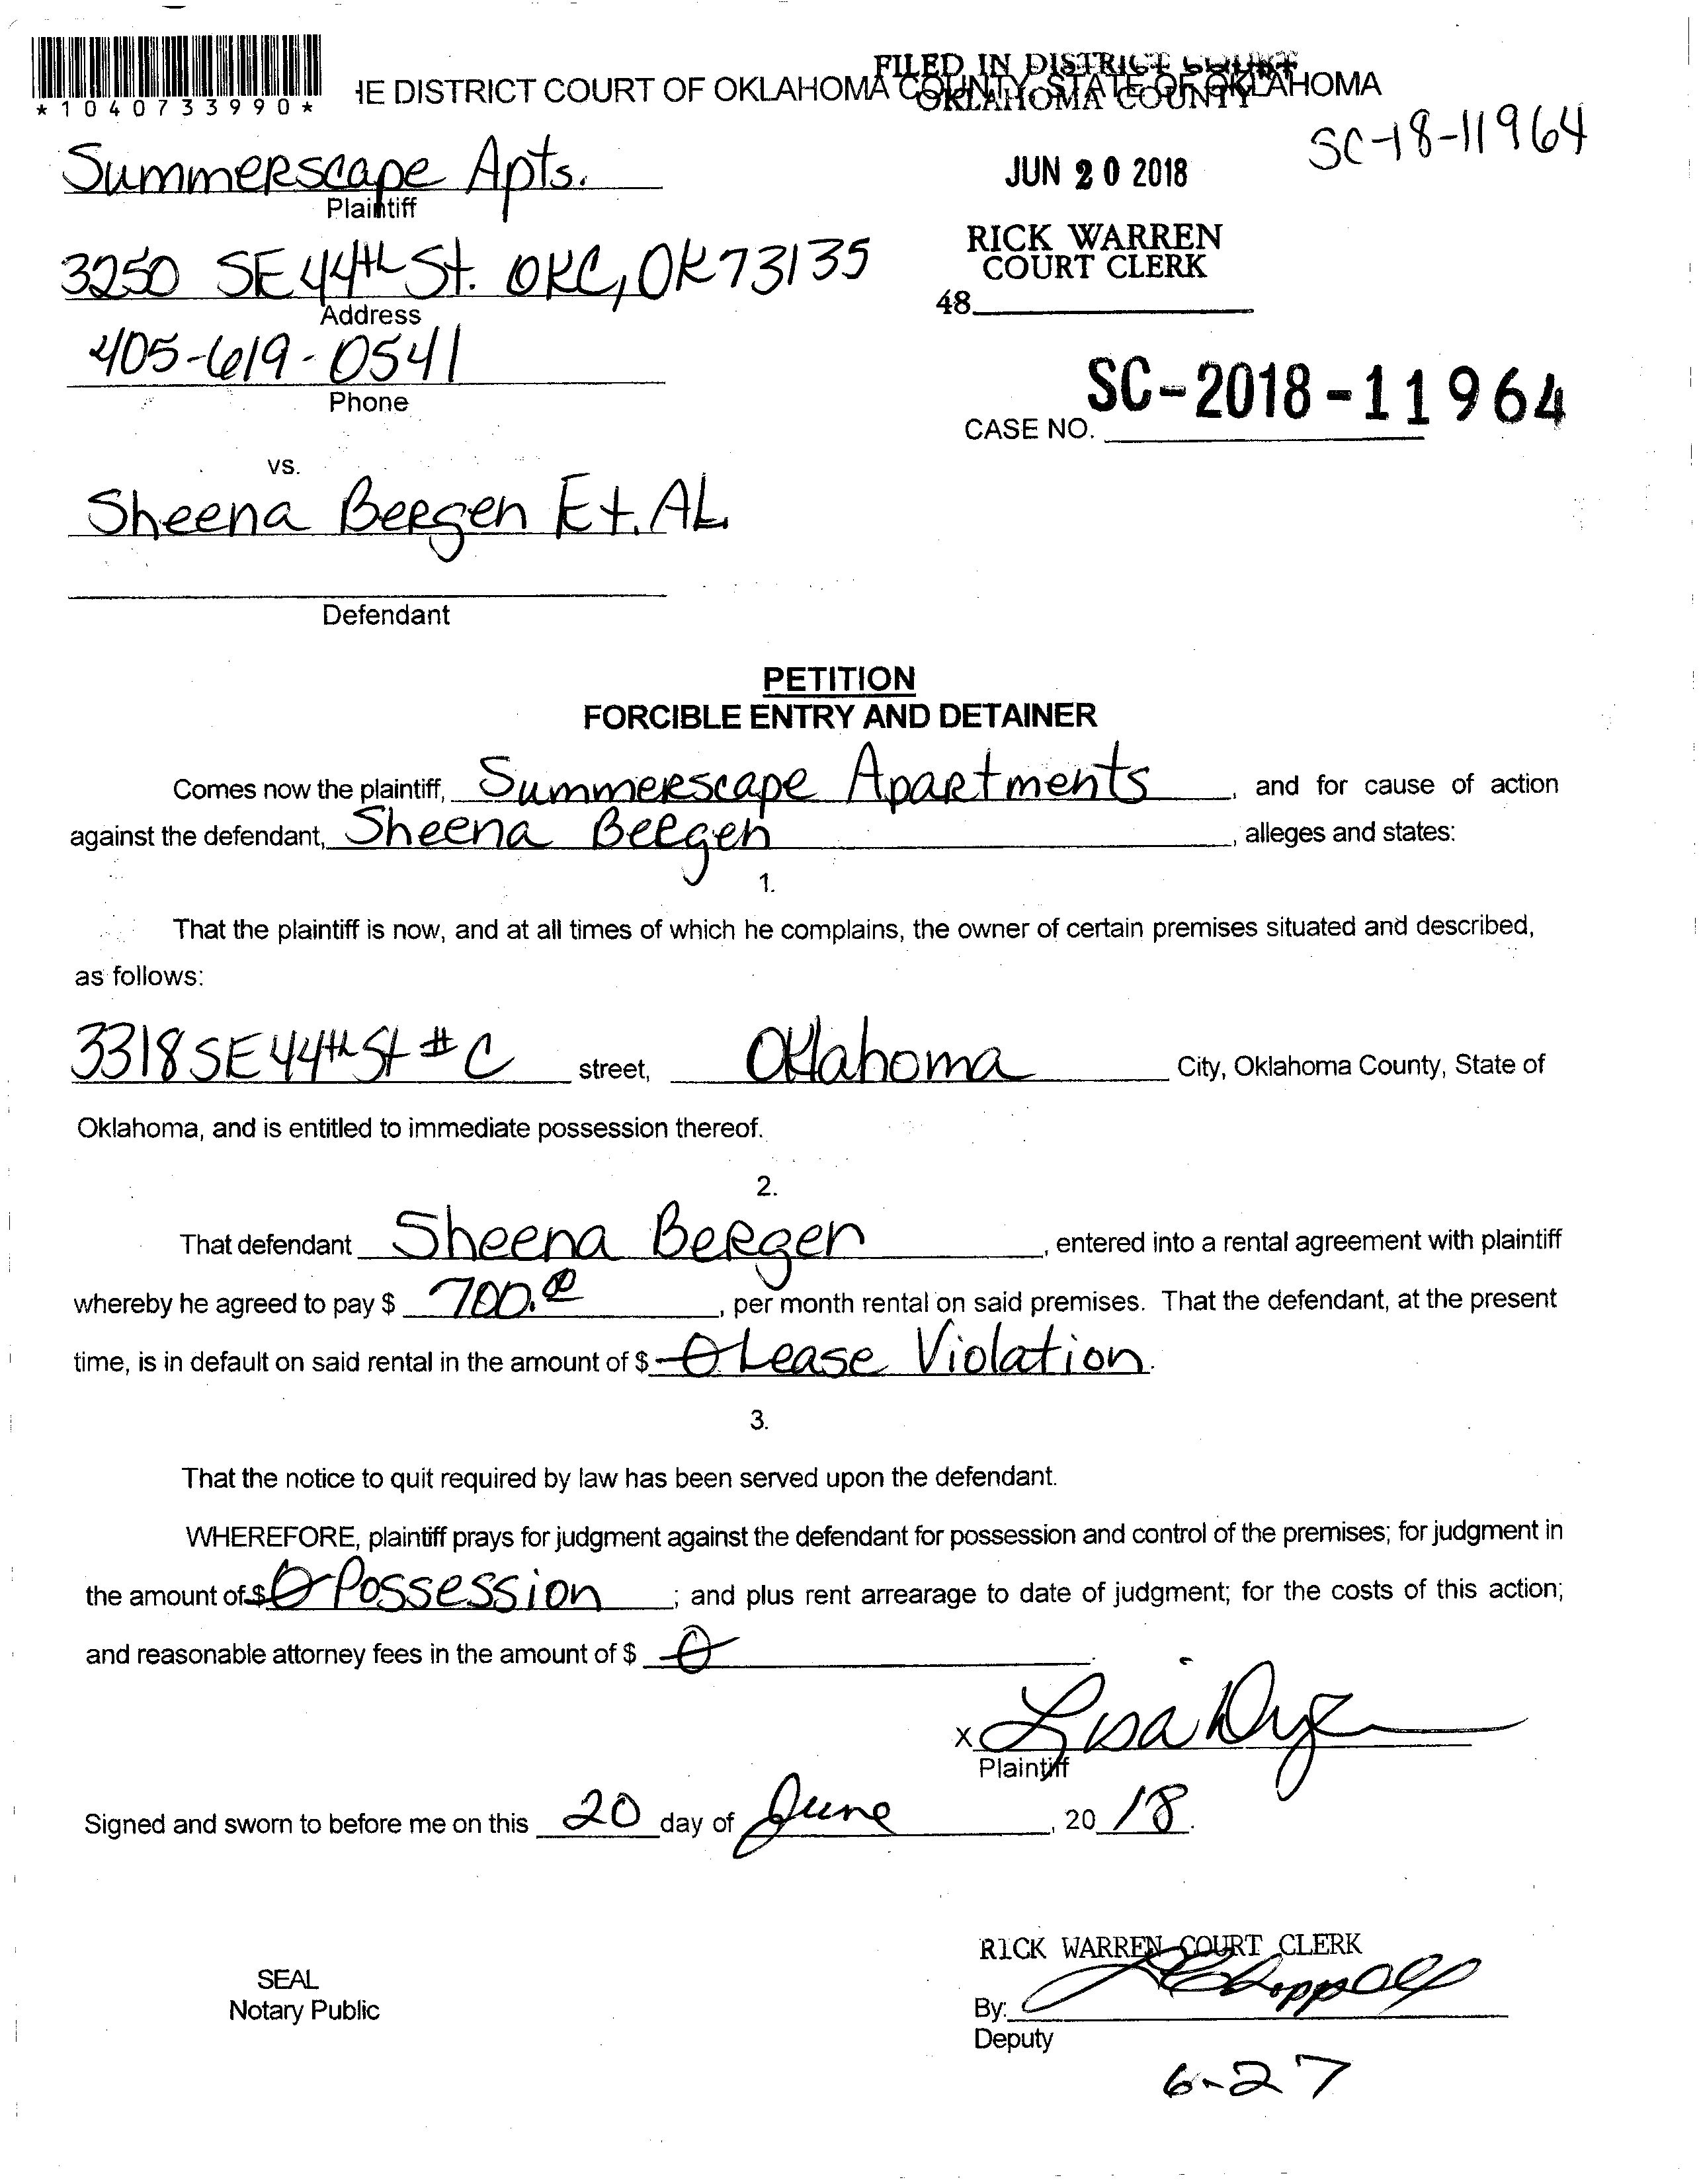 *1040733990*
HE DISTRICT COURT OF OKLAHOMA COUNTY, STATE OF OKLAHOMA
FILED IN DISTRICT COURT
OKLAHOMA COUNTY
SC-18-11964
Summerscape Apts.
Plaintiff
JUN 20 2018
3250 SE 44th St. OKC, OK 73135
Address
RICK WARREN
COURT CLERK
48
405-619-0541
Phone
CASE NO. SC-2018-11964
vs.
Sheena Bergen Et. AL.
Defendant
PETITION
FORCIBLE ENTRY AND DETAINER
Comes now the plaintiff, Summerscape Apartments, and for cause of action
against the defendant, Sheena Bergen, alleges and states:
1.
That the plaintiff is now, and at all times of which he complains, the owner of certain premises situated and described,
as follows:
3318 SE 44th St # C street, Oklahoma City, Oklahoma County, State of
Oklahoma, and is entitled to immediate possession thereof.
2.
That defendant Sheena Bergen, entered into a rental agreement with plaintiff
whereby he agreed to pay $ 700.00, per month rental on said premises. That the defendant, at the present
time, is in default on said rental in the amount of $ 0 Lease Violation.
3.
That the notice to quit required by law has been served upon the defendant.
WHEREFORE, plaintiff prays for judgment against the defendant for possession and control of the premises; for judgment in
the amount of $ 0 Possession; and plus rent arrearage to date of judgment; for the costs of this action;
and reasonable attorney fees in the amount of $ 0.
X Lisa Dyer
Plaintiff
Signed and sworn to before me on this 20 day of June, 20 18.
RICK WARREN COURT CLERK
SEAL
Notary Public
By:
Deputy
6-27